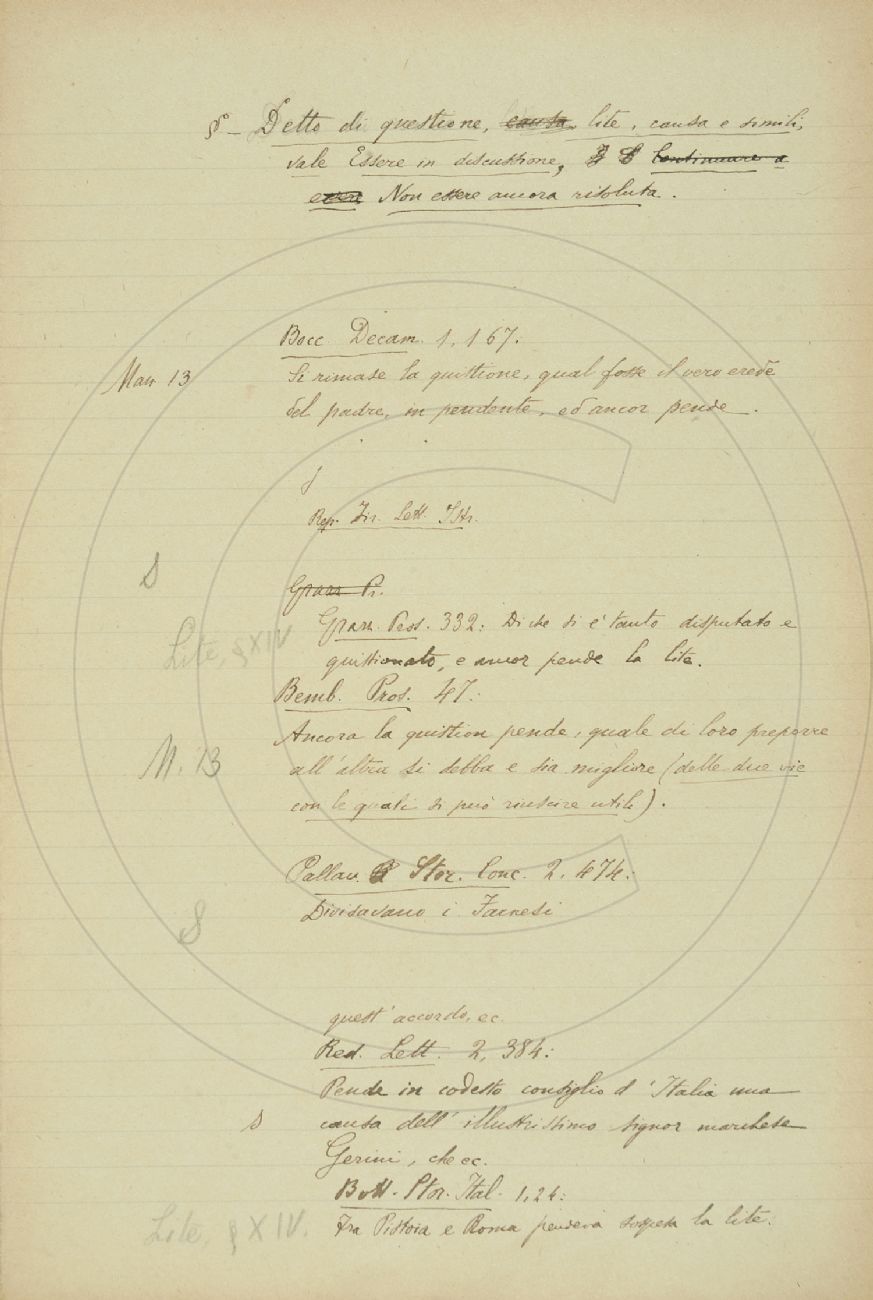 § - Detto di questione, causa lite, causa e simili,
vale Essere in discussione, Continuare a
essere Non essere ancora risoluta.
Bocc. Decam. 1, 167:
Man 13
Si rimase la quistione, qual fosse il vero erede
del padre, in pendente, ed ancor pende.
Rep. Fir. Lett. Istr.
S
Gran Pr.
Lite, § XIV
Pros. 332: Di che si è tanto disputato e
quistionato, e ancor pende la lite.
Bemb. Pros. 47:
Ancora la quistion pende, quale di loro preporre
M. 13
all'altra si debba e sia migliore (delle due vie
con le quali si può riuscire utile).
Pallav. Stor. Conc. 2, 474:
Divisavano i Farnesi
S
quest'accordo, ec.
Red. Lett. 2, 384:
Pende in codesto consiglio d'Italia una
S
causa dell'illustrissimo signor marchese
Gerini, che ec.
Bott. Stor. Ital. 1, 24:
Lite, § XIV.
Fra Pistoia e Roma pendeva sospesa la lite.